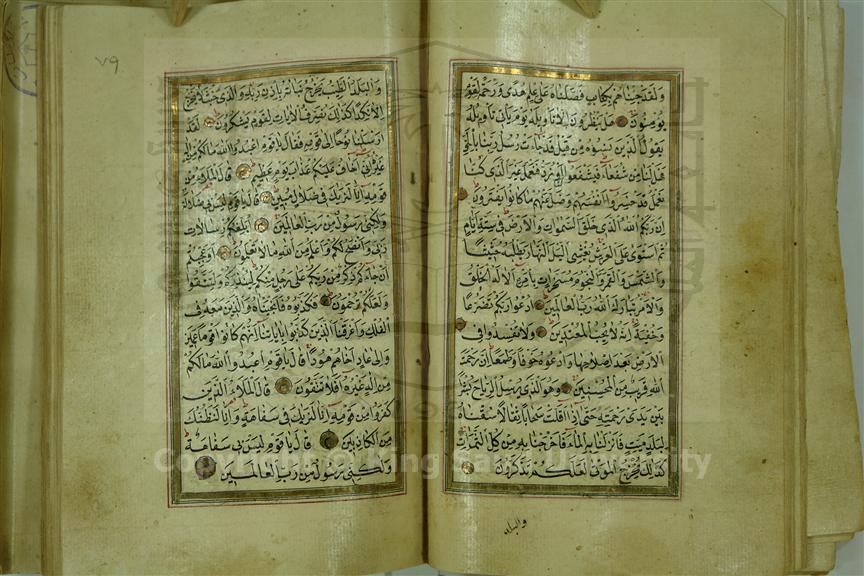 ولقد جئناهم بكتاب فصلناه على علم هدى ورحمة لقوم
يؤمنون هل ينظرون الا تأويله يوم يأتى تأويله
يقول الذين نسوه من قبل قد جاءت رسل ربنا بالحق
فهل لنا من شفعاء فيشفعوا لنا او نرد فنعمل غير الذى كنا
نعمل قد خسروا انفسهم وضل عنهم ما كانوا يفترون
ان ربكم الله الذى خلق السموات والارض فى ستة ايام
ثم استوى على العرش يغشى اليل النهار يطلبه حثيثا
والشمس والقمر والنجوم مسخرات بامره الا له الخلق
والامر تبارك الله رب العالمين ادعوا ربكم تضرعا
وخفية انه لا يحب المعتدين ولا تفسدوا فى
الارض بعد اصلاحها وادعوه خوفا وطمعا ان رحمة
الله قريب من المحسنين وهو الذى يرسل الرياح بشرا
بين يدى رحمته حتى اذا اقلت سحابا ثقالا سقناه
لبلد ميت فانزلنا به الماء فاخرجنا به من كل الثمرات
كذلك نخرج الموتى لعلكم تذكرون
والبلد
٧٩
والبلد الطيب يخرج نباته باذن ربه والذى خبث لا يخرج
الا نكدا كذلك نصرف الايات لقوم يشكرون لقد
ارسلنا نوحا الى قومه فقال يا قوم اعبدوا الله ما لكم من اله
غيره انى اخاف عليكم عذاب يوم عظيم قال الملأ من
قومه انا لنريك فى ضلال مبين قال يا قوم ليس بى ضلالة
ولكنى رسول من رب العالمين ابلغكم رسالات
ربى وانصح لكم واعلم من الله ما لا تعلمون اوعجبتم
ان جاءكم ذكر من ربكم على رجل منكم لينذركم ولتتقوا
ولعلكم ترحمون فكذبوه فانجيناه والذين معه فى
الفلك واغرقنا الذين كذبوا باياتنا انهم كانوا قوما عمين
والى عاد اخاهم هودا قال يا قوم اعبدوا الله ما لكم
من اله غيره افلا تتقون قال الملأ الذين
كفروا من قومه انا لنريك فى سفاهة وانا لنظنك
من الكاذبين قال يا قوم ليس بى سفاهة
ولكنى رسول من رب العالمين
Copyright © King Saud University